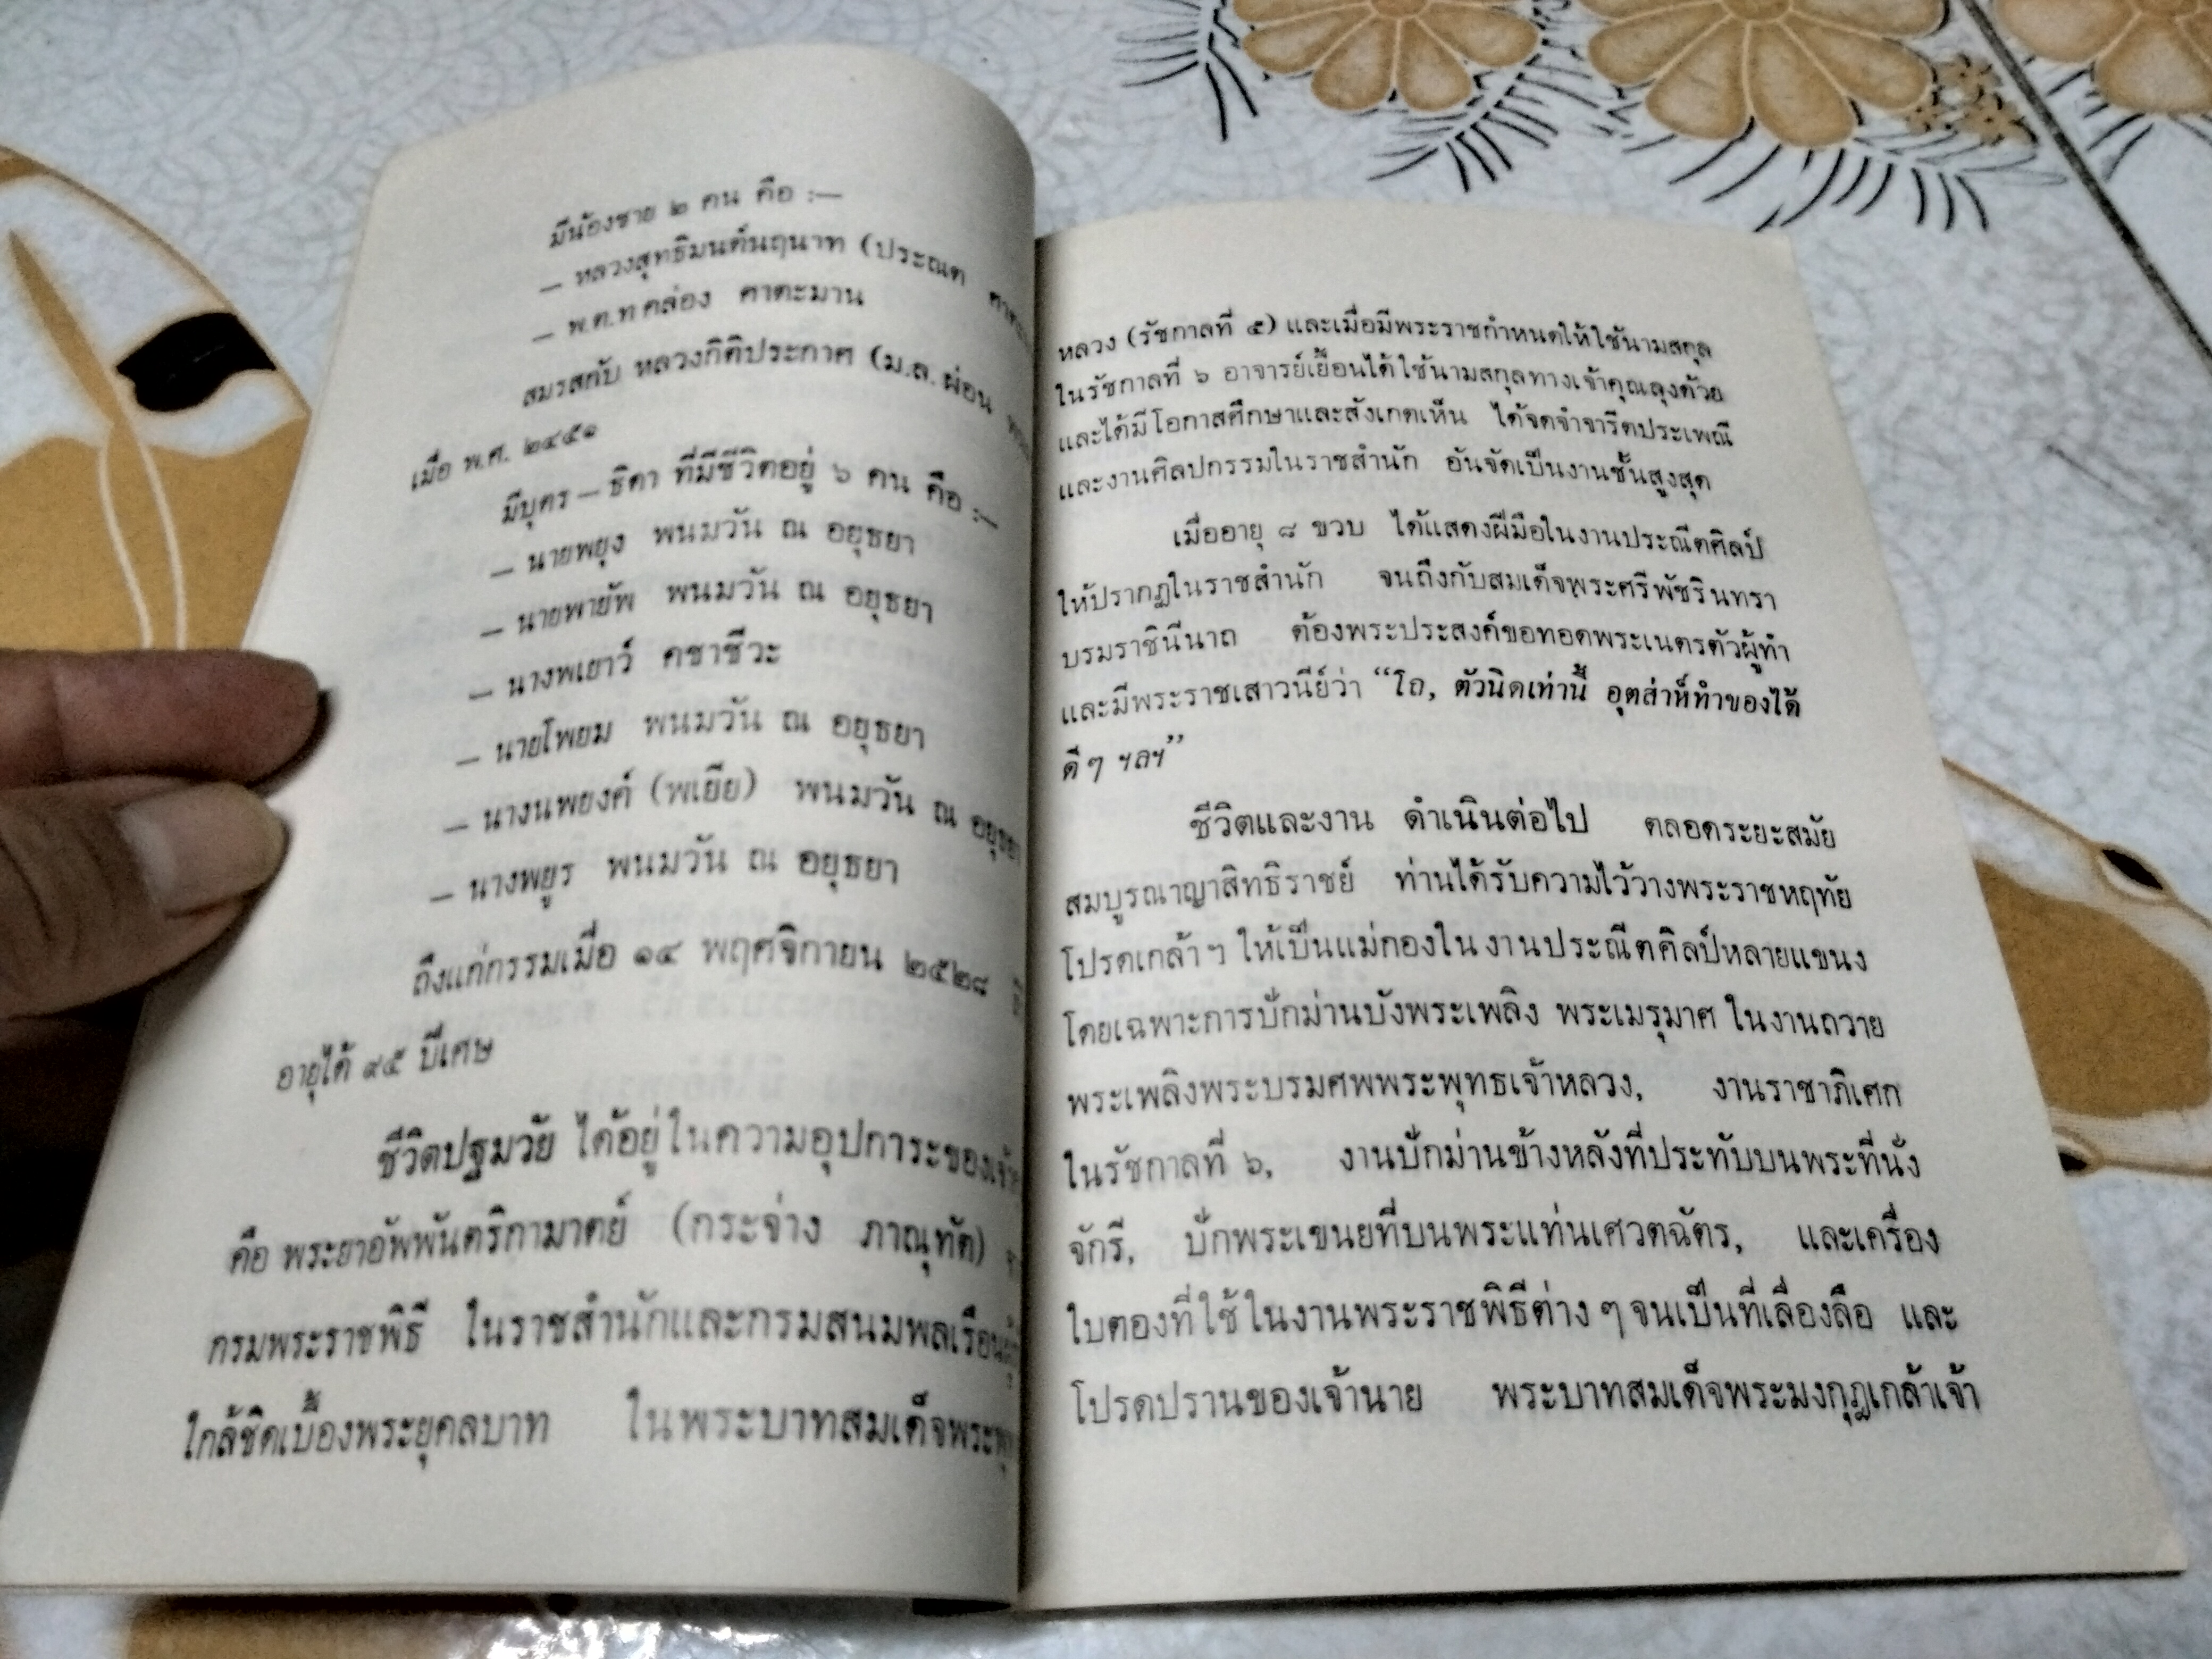 มีน้องชาย ๒ คน คือ :—
— หลวงสุทธิมนต์นฤนาท (ประณต
— พ.ต.ท คล่อง คาตะมาน
สมรสกับ หลวงกิติประกาศ (ม.ล. ผ่อน
เมื่อ พ.ศ. ๒๔๕๑
มีบุตร — ธิดา ที่มีชีวิตอยู่ ๖ คน คือ :—
— นายพยุง พนมวัน ณ อยุธยา
— นายพายัพ พนมวัน ณ อยุธยา
— นางพเยาว์ คชาชีวะ
— นายโพยม พนมวัน ณ อยุธยา
— นางนพยงค์ (พเยีย) พนมวัน ณ อยุธยา
— นางพยูร พนมวัน ณ อยุธยา
ถึงแก่กรรมเมื่อ ๑๔ พฤศจิกายน ๒๕๒๘
อายุได้ ๙๕ ปีเศษ
ชีวิตปฐมวัย ได้อยู่ในความอุปการะของ
คือ พระยาอัพพันตริกามาตย์ (กระจ่าง ภาณุทัต)
กรมพระราชพิธี ในราชสำนักและกรมสนมพลเรือน
ใกล้ชิดเบื้องพระยุคลบาท ในพระบาทสมเด็จพระ
หลวง (รัชกาลที่ ๕) และเมื่อมีพระราชกำหนดให้ใช้นามสกุล
ในรัชกาลที่ ๖ อาจารย์เยื้อนได้ใช้นามสกุลทางเจ้าคุณลุงด้วย
และได้มีโอกาสศึกษาและสังเกตเห็น ได้จดจำจารีตประเพณี
และงานศิลปกรรมในราชสำนัก อันจัดเป็นงานชั้นสูงสุด
เมื่ออายุ ๘ ขวบ ได้แสดงฝีมือในงานประณีตศิลป์
ให้ปรากฏในราชสำนัก จนถึงกับสมเด็จพระศรีพัชรินทรา
บรมราชินีนาถ ต้องพระประสงค์ขอทอดพระเนตรตัวผู้ทำ
และมีพระราชเสาวนีย์ว่า “โถ, ตัวนิดเท่านี้ อุตส่าห์ทำของได้
ดี ๆ ฯลฯ”
ชีวิตและงาน ดำเนินต่อไป ตลอดระยะสมัย
สมบูรณาญาสิทธิราชย์ ท่านได้รับความไว้วางพระราชหฤทัย
โปรดเกล้า ฯ ให้เป็นแม่กองในงานประณีตศิลป์หลายแขนง
โดยเฉพาะการปักม่านบังพระเพลิง พระเมรุมาศ ในงานถวาย
พระเพลิงพระบรมศพพระพุทธเจ้าหลวง, งานราชาภิเศก
ในรัชกาลที่ ๖, งานปักม่านข้างหลังที่ประทับบนพระที่นั่ง
จักรี, ปักพระเขนยที่บนพระแท่นเศวตฉัตร, และเครื่อง
ใบตองที่ใช้ในงานพระราชพิธีต่าง ๆ จนเป็นที่เลื่องลือ และ
โปรดปรานของเจ้านาย พระบาทสมเด็จพระมงกุฎเกล้าเจ้า